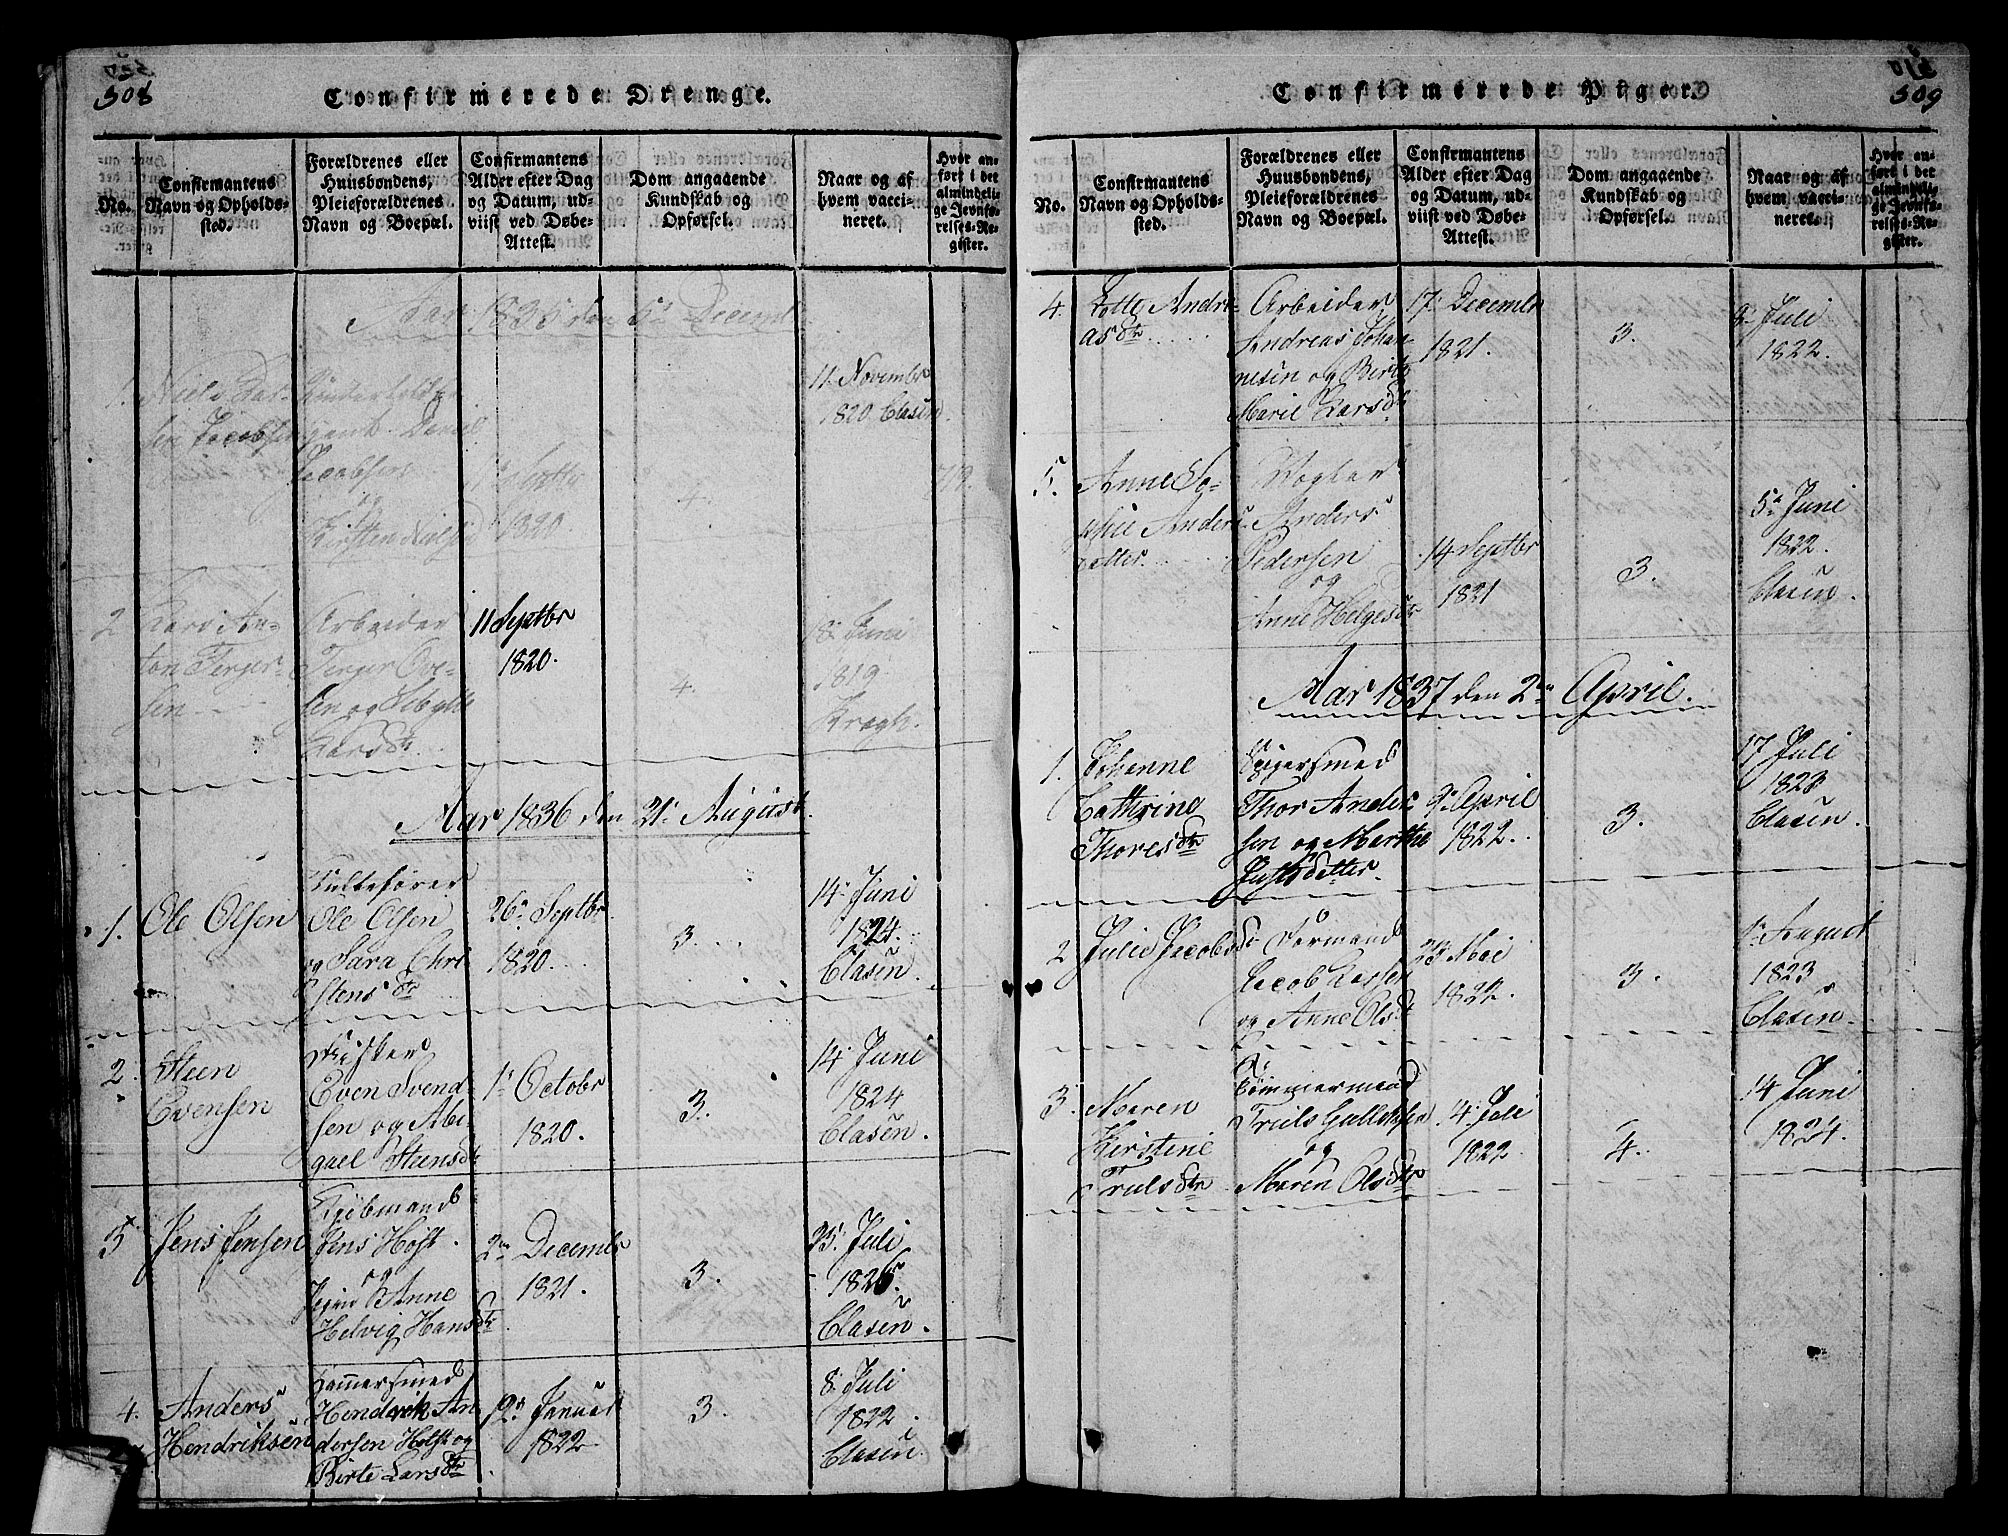 508
Confirmerede Drenge.
No.
Confirmantens
Navn og Opholds-
sted.
Forældrenes eller
Huusbondens,
Pleieforældrenes
Navn og Boepæl.
Confirmantens
Alder efter Dag
og Datum, ud-
viist ved Døbe-
Attest.
Dom angaaende
Kundskab og
Opførsel.
Naar og af
hvem vacci-
neret.
Hvor an-
ført i det
almindeli-
ge Jevnfø-
relses-Re-
gister.
Aar 1835 den 6te Decembr
1.
Jacobsen
Jacobsen
og
Kirsten
Septbr
1820
4.
11. Novembr
1820 Clasen
2
Lars An-
ton Terger-
sen
Arbeider
Terger Ove-
sen og Sibylle
Larsdtr
11 Septbr
1820.
4.
18. Juni
1819
Kragh.
Aar 1836 den 21. August
1.
Ole Olsen
Ole Olsen
og Sara Chri-
stensdtr
26. Septbr
1820.
3.
14. Juni
1824.
Clasen.
2.
Steen
Evensen
Even Svend-
sen og Abi-
gael Steensdtr
1. Octobr
1820.
3.
14. Juni
1824
Clasen.
3
Jens Jensen
Kjøbmand
Jens Høst.
og
Anne
Helvig Hansdtr
2den Decembr
1821.
3.
25. Juli
1826.
Clasen.
4.
Anders
Hendriksen
Hammersmed
Hendrik An-
dersen Holst og
Birte Larsdtr
12. Januar
1822
3.
8. Juli
1822.
Clasen.
509
Confirmerede Piger.
No.
Confirmantens
Navn og Opholds-
sted.
Forældrenes eller
Huusbondens,
Pleieforældrenes
Navn og Boepæl.
Confirmantens
Alder efter Dag
og Datum, ud-
viist ved Døbe-
Attest.
Dom angaaende
Kundskab og
Opførsel.
Naar og af
hvem vacci-
neret.
Hvor an-
ført i det
almindeli-
ge Jevnfø-
relses-Re-
gister.
4.
Lotte Andre-
asdtr
Arbeider
Andreas Johan-
nesen og Birte
Marie Larsdtr
17. Decembr
1821.
3.
8. Juli
1822.
5.
Anne So-
phie Anders-
datter
Anders
Pedersen
og
Anne Helgesdtr
14 Septbr
1821
3.
5. Juni
1822.
Clasen.
Aar 1837 den 2den April.
1.
Johanne
Cathrine
Thoresdtr
Spigersmed
Thor Ander-
sen og Marthe
Justsdatter.
9. April
1822.
3.
17 Juli
1823
Clasen.
2
Julie Jacobsdtr
Formand
Jacob Larsen
og Anne Olsdtr
23. Mai
1822.
3.
1. August
1823
Clasen.
3.
Maren
Kirstine
Trulsdtr
Tømmermand
Truls Gulliksen
og
Maren Olsdtr
4. Juli
1822
4.
14 Juni
1824.